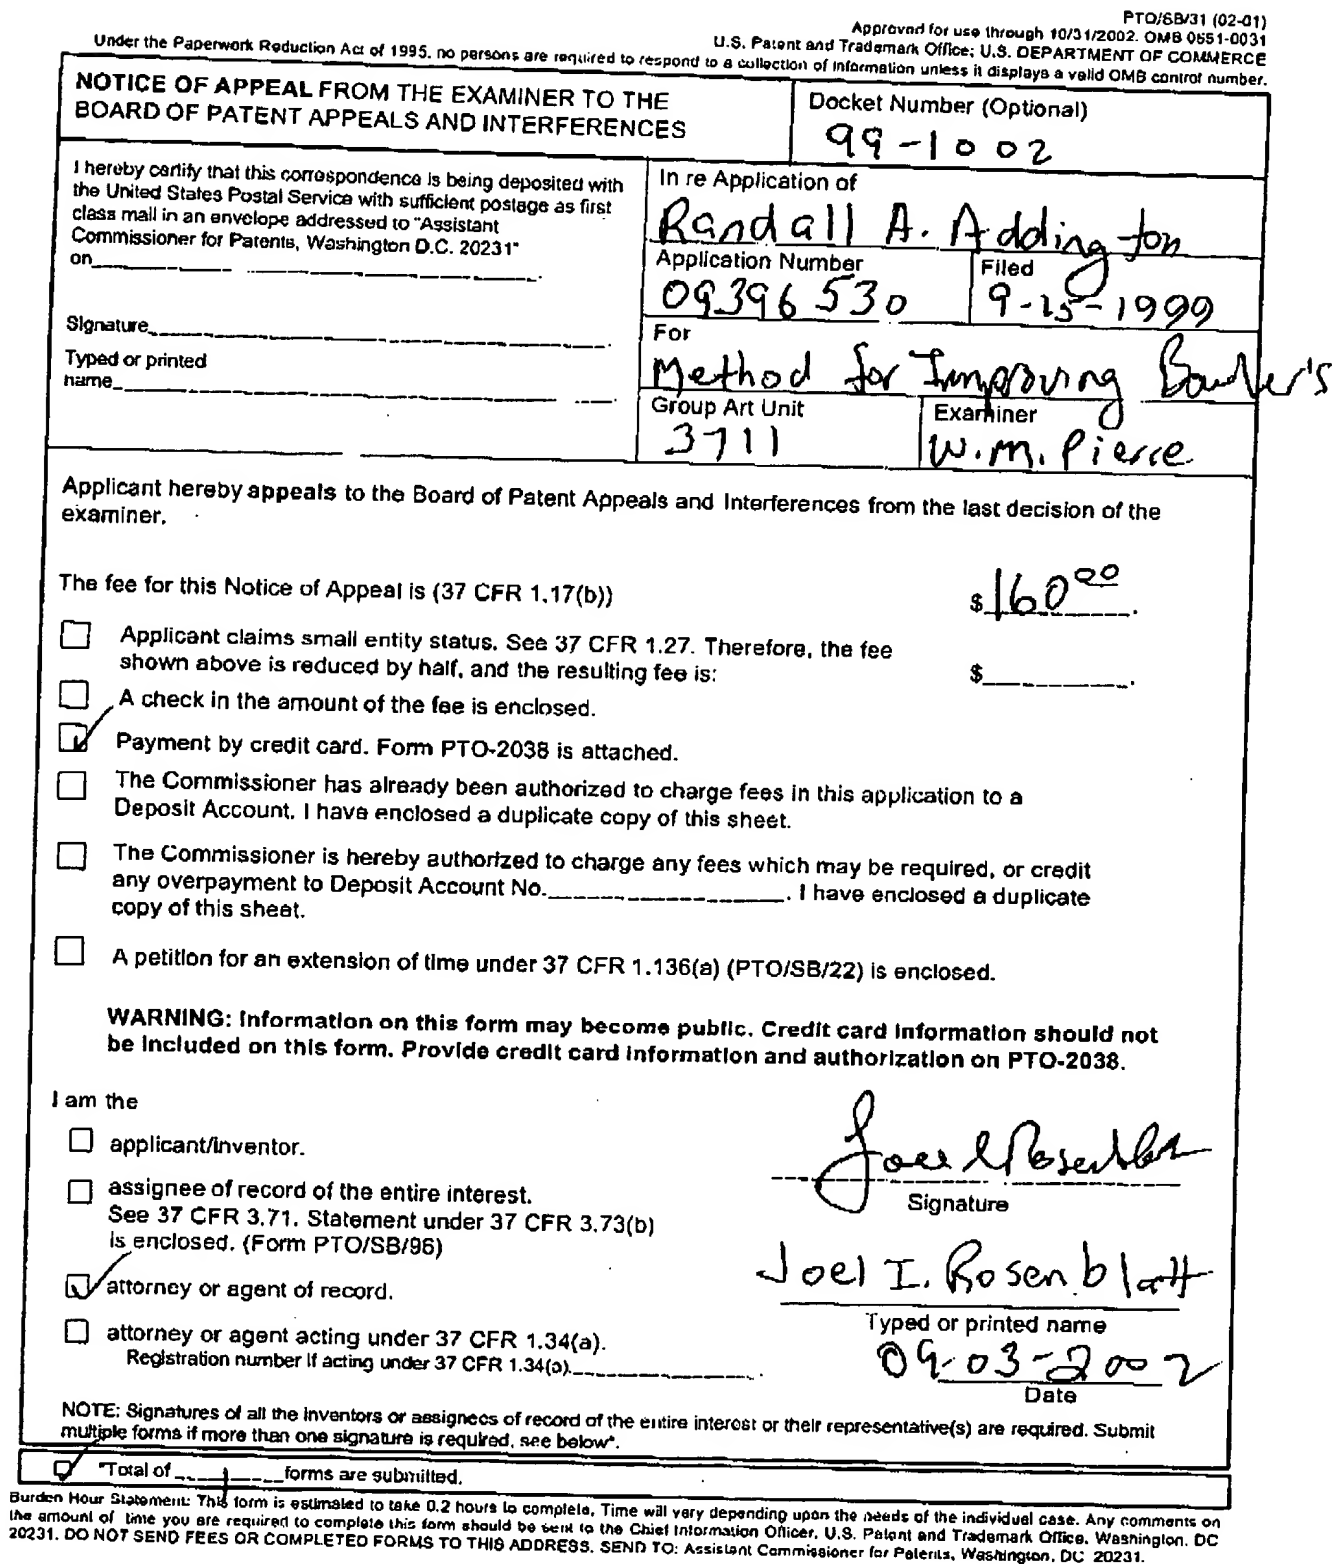 PTO/SB/31 (02-01)
Approved for use through 10/31/2002. OMB 0651-0031
U.S. Patent and Trademark Office; U.S. DEPARTMENT OF COMMERCE
Under the Paperwork Reduction Act of 1995, no persons are required to respond to a collection of information unless it displays a valid OMB control number.
NOTICE OF APPEAL FROM THE EXAMINER TO THE
BOARD OF PATENT APPEALS AND INTERFERENCES
Docket Number (Optional)
99-1002
I hereby certify that this correspondence is being deposited with
the United States Postal Service with sufficient postage as first
class mail in an envelope addressed to "Assistant
Commissioner for Patents, Washington D.C. 20231"
on
Signature
Typed or printed
name
In re Application of
Randall A. Addington
Application Number
09396530
Filed
9-15-1999
For
Method for Improving Bowler's
Group Art Unit
3711
Examiner
W.M. Pierce
Applicant hereby appeals to the Board of Patent Appeals and Interferences from the last decision of the
examiner.
The fee for this Notice of Appeal is (37 CFR 1.17(b))
$160 00.
Applicant claims small entity status. See 37 CFR 1.27. Therefore, the fee
shown above is reduced by half, and the resulting fee is:
$ .
A check in the amount of the fee is enclosed.
Payment by credit card. Form PTO-2038 is attached.
The Commissioner has already been authorized to charge fees in this application to a
Deposit Account. I have enclosed a duplicate copy of this sheet.
The Commissioner is hereby authorized to charge any fees which may be required, or credit
any overpayment to Deposit Account No. . I have enclosed a duplicate
copy of this sheet.
A petition for an extension of time under 37 CFR 1.136(a) (PTO/SB/22) is enclosed.
WARNING: Information on this form may become public. Credit card information should not
be included on this form. Provide credit card information and authorization on PTO-2038.
I am the
applicant/inventor.
assignee of record of the entire interest.
See 37 CFR 3.71. Statement under 37 CFR 3.73(b)
is enclosed. (Form PTO/SB/96)
attorney or agent of record.
attorney or agent acting under 37 CFR 1.34(a).
Registration number if acting under 37 CFR 1.34(a).
Joel I Rosenblatt
Signature
Joel I. Rosenblatt
Typed or printed name
09-03-2002
Date
NOTE: Signatures of all the inventors or assignees of record of the entire interest or their representative(s) are required. Submit
multiple forms if more than one signature is required, see below*.
*Total of 1 forms are submitted.
Burden Hour Statement: This form is estimated to take 0.2 hours to complete. Time will vary depending upon the needs of the individual case. Any comments on
the amount of time you are required to complete this form should be sent to the Chief Information Officer, U.S. Patent and Trademark Office, Washington, DC
20231. DO NOT SEND FEES OR COMPLETED FORMS TO THIS ADDRESS. SEND TO: Assistant Commissioner for Patents, Washington, DC 20231.